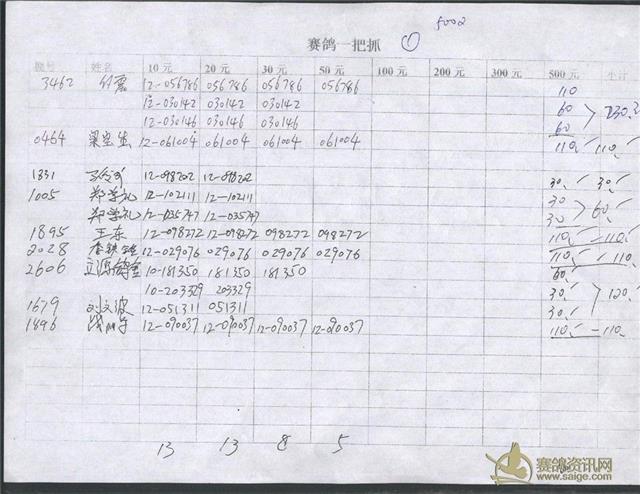 5002
赛鸽一把抓 ①
棚号 姓名 10元 20元 30元 50元 100元 200元 300元 500元 小计
3462 12-056786 056786 056786 056786 110
12-030142 030142 030142 60
12-030146 030146 030146 60 230
0464 12-061004 061004 061004 061004 110 110
1331 12-098202 12-098202 30 30
1005 郑学礼 12-102111 12-102111 30
郑学礼 12-035747 12-035747 30 60
1895 王东 12-098272 12-098272 098272 098272 110 110
2028 12-029076 029076 029076 029076 110 110
2606 10-181350 181350 181350 60
10-203329 203329 30 120
1679 刘文波 12-051311 051311 30
1896 12-090037 12-090037 12-090037 12-090037 110 110
13 13 8 5
赛鸽资讯网
www.saige.com